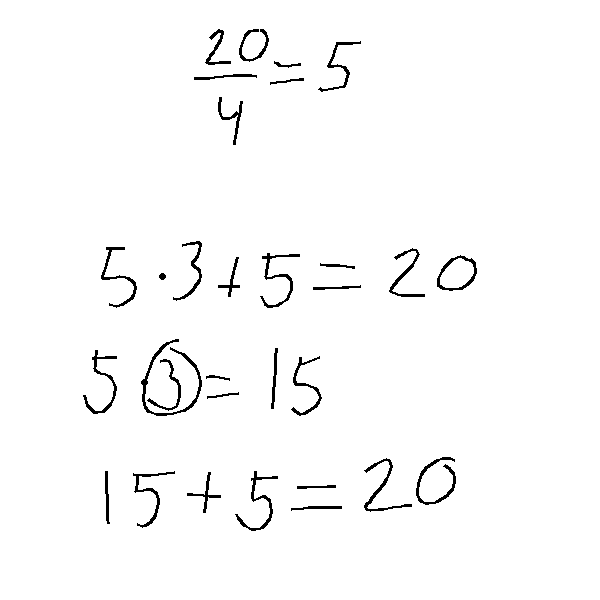 20/4 = 5
5 · 3 + 5 = 20
5 ③ = 15
15 + 5 = 20